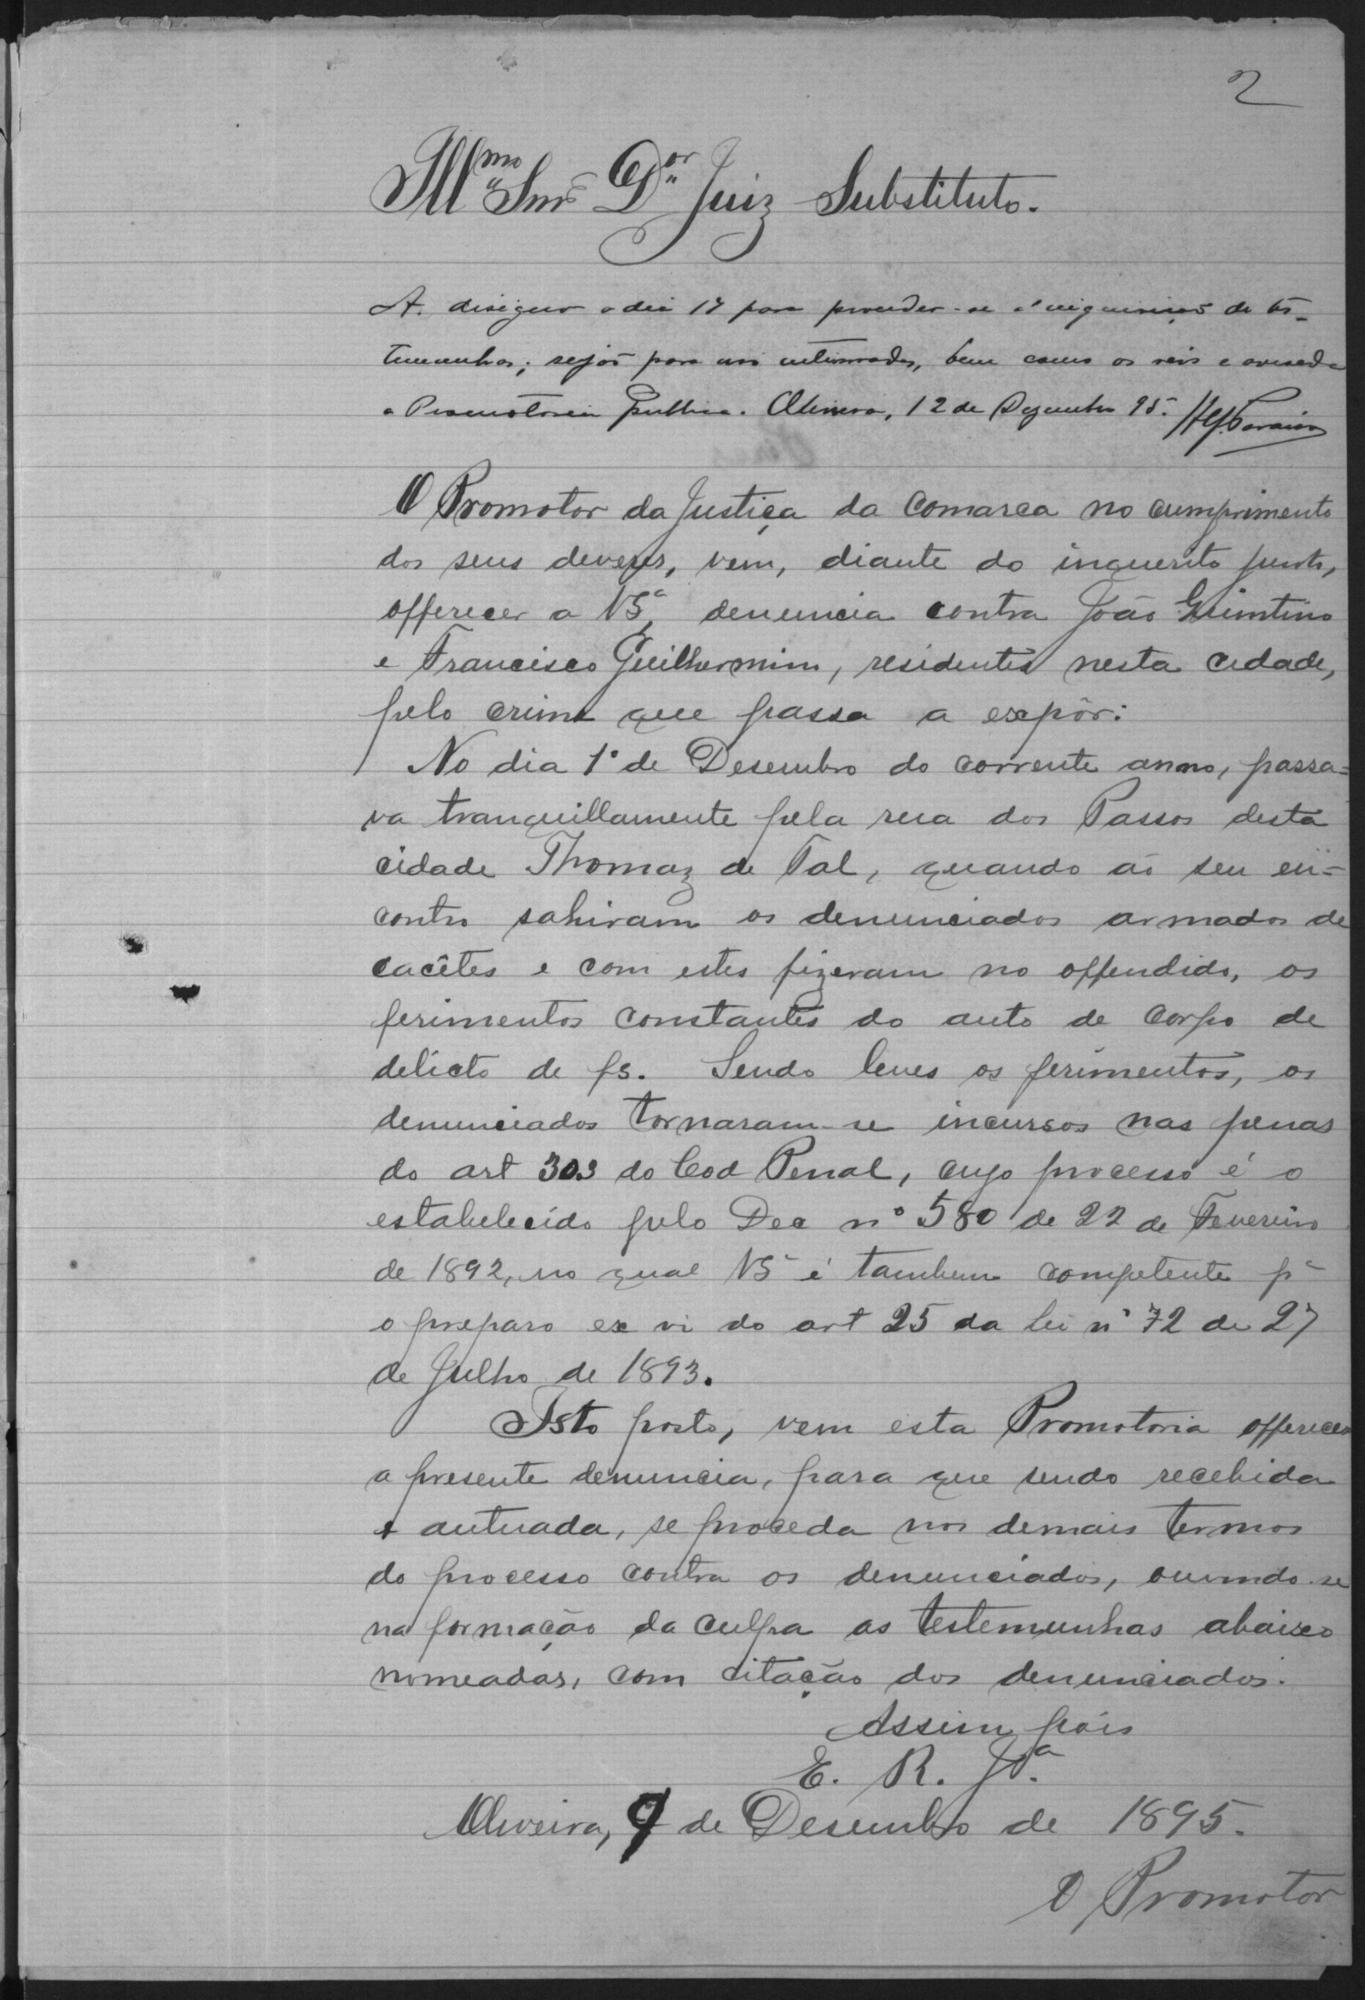 2
Illmo Snr Dor Juiz Substituto.
A. designo o dia 17 para proceder-se á inquirição de tes-
temunhas; sejão para isso intimadas, bem como os reis e avisada
a Promotoria Publica. Oliveira, 12 de Dezembro 95.
O Promotor da Justiça da Comarca no cumprimento
dos seus deveres, vem, diante do inquerito junto,
offerecer a VSª denuncia contra João Quintino
e Francisco Guilhermino, residentes nesta cidade,
pelo crime que passa a expôr:
No dia 1º de Desembro do corrente anno, passa=
va tranquillamente pela rua dos Passos desta
cidade Thomaz de Tal, quando ao seu en=
contro sahiram os denunciados armados de
cacêtes e com estes fizeram no offendido, os
ferimentos constantes do auto de corpo de
delicto de fs. Sendo leves os ferimentos, os
denunciados tornaram-se incursos nas penas
do art 303 do Cod Penal, cujo processo é o
estabelecido pelo Dec nº 580 de 22 de Fevereiro
de 1892, no qual VSª é tambem competente pª
o preparo ex vi do art 25 da lei nº 72 de 27
de Julho de 1893.
Isto posto, vem esta Promotoria offerecer
a presente denuncia, para que sendo recebida
e autuada, se proceda nos demais termos
do processo contra os denunciados, ouvindo-se
na formação da culpa as testemunhas abaixo
nomeadas, com citação dos denunciados.
Assim pois
E. R. Jª.
Oliveira, 9 de Desembro de 1895.
O Promotor